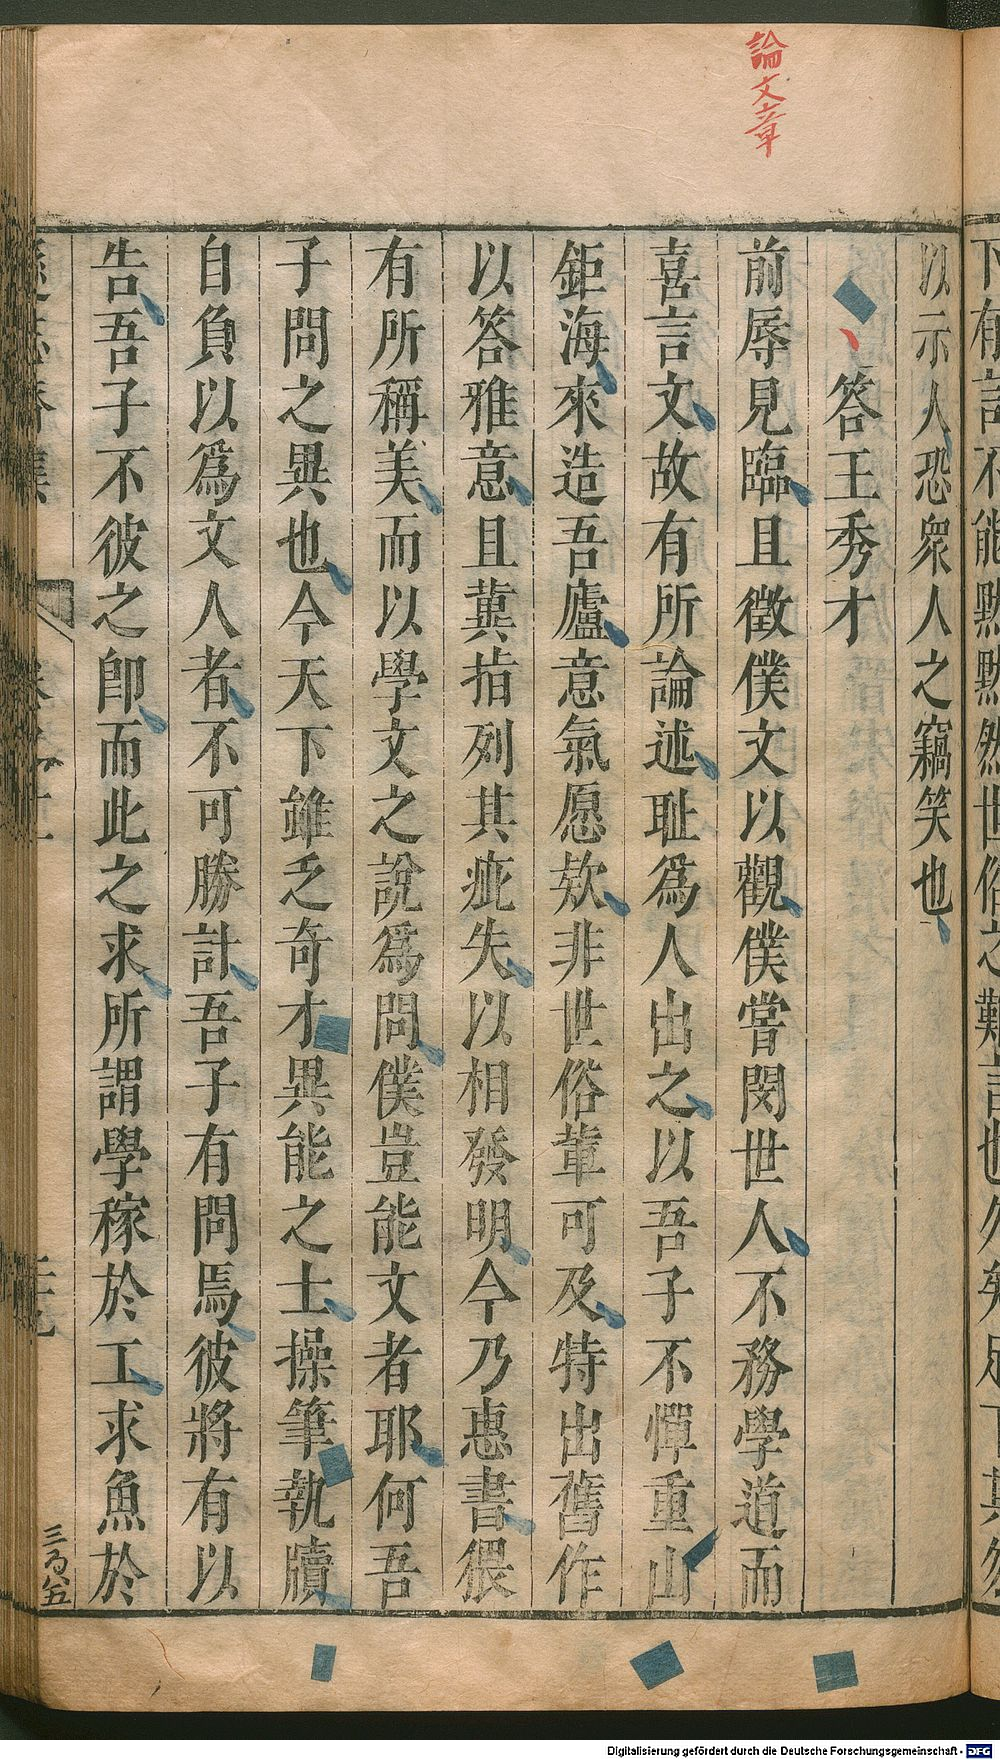 論文章
以示人恐衆人之竊笑也
答王秀才
前辱見臨且徵僕文以觀僕嘗閔世人不務學道而
喜言文故有所論述耻爲人出之以吾子不憚重山
鉅海來造吾廬意氣愿欵非世俗輩可及特出舊作
以答雅意且冀指列其疵失以相發明今乃惠書猥
有所稱美而以學文之說爲問僕豈能文者耶何吾
子問之異也今天下雖乏奇才異能之士操筆執牘
自負以爲文人者不可勝計吾子有問焉彼將有以
告吾子不彼之卽而此之求所謂學稼於工求魚於
Digitalisierung gefördert durch die Deutsche Forschungsgemeinschaft - DFG